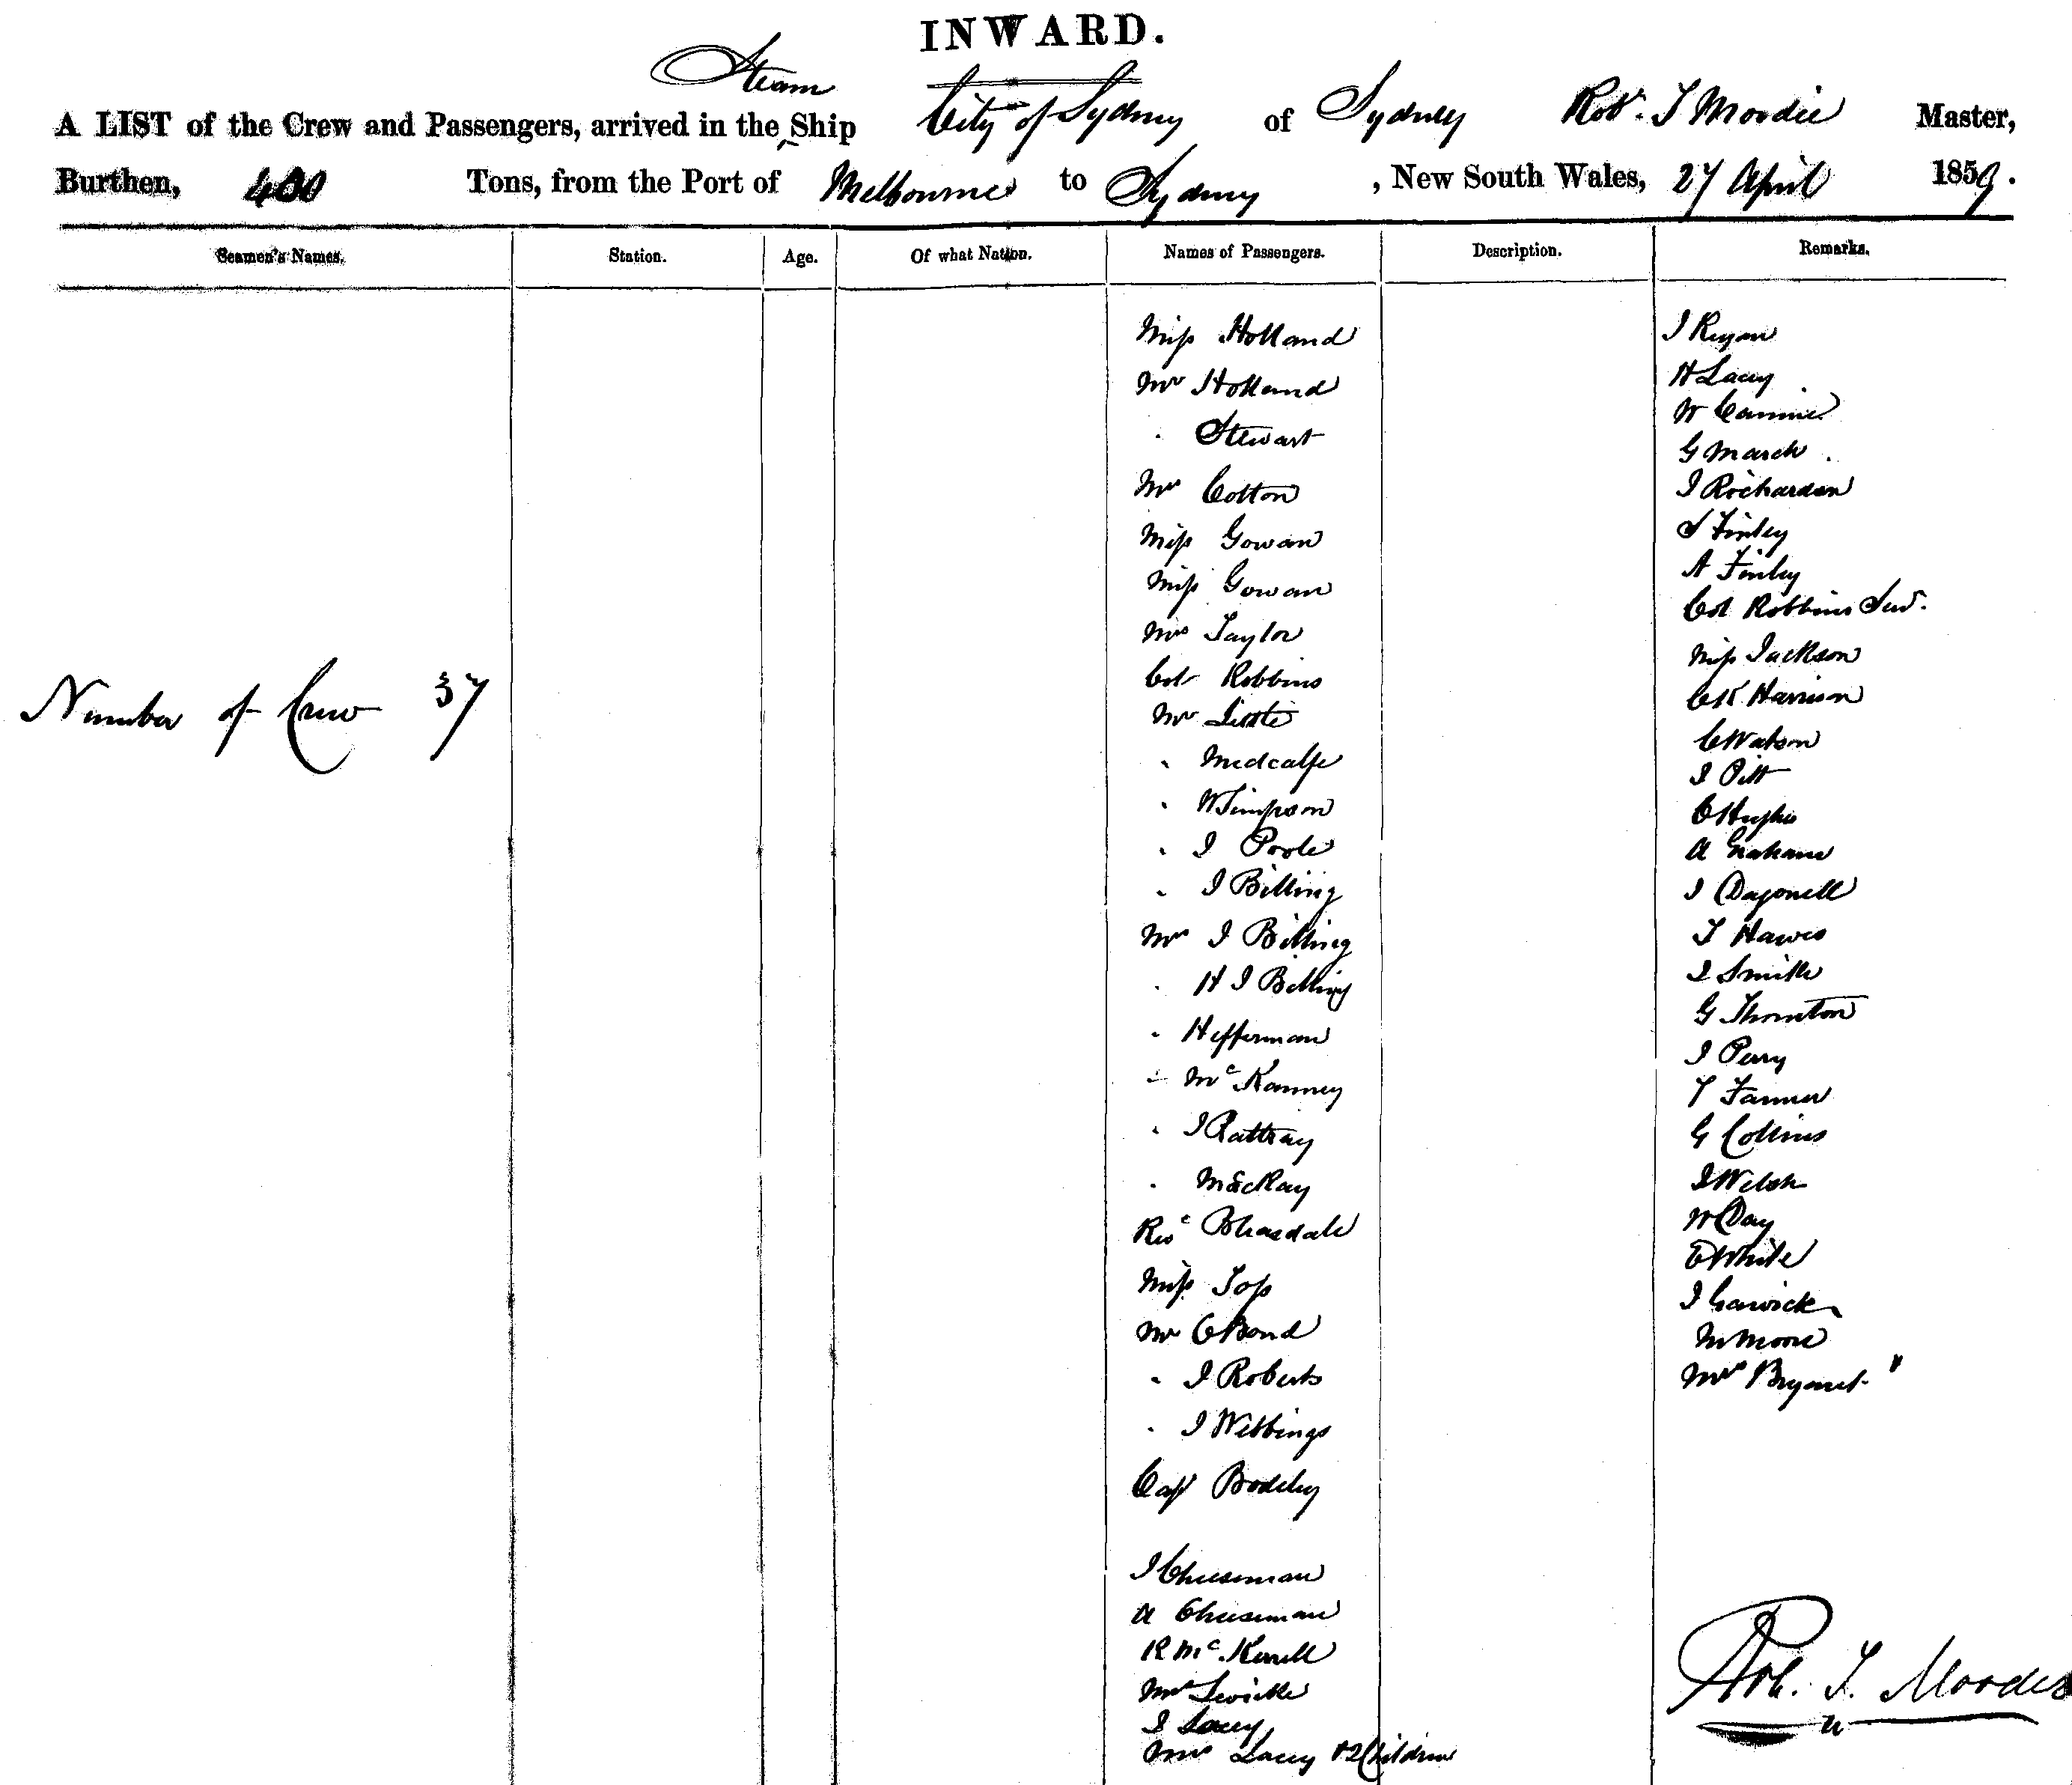 INWARD.
Steam
A LIST of the Crew and Passengers, arrived in the Ship City of Sydney of Sydney Robt. T Moodie Master,
Burthen, 400 Tons, from the Port of Melbourne to Sydney, New South Wales, 27 April 1859.
Seamen's Names. Station. Age. Of what Nation. Names of Passengers. Description. Remarks.
Number of Crew 37
Miss Holland
Mr Holland
" Stewart
Mrs Cotton
Miss Gowan
Miss Gowan
Mrs Taylor
Col Robbins
Mr Little
" Medcalfe
" W Simpson
" I Poole
" I Billing
Mrs I Billing
" H I Billing
" Hefferman
" Mc Kanney
" I Rattray
" MacKay
Revd Bleasdale
Miss Joss
Mr C Bond
" I Roberts
" I Webbings
Cap
I Cheeseman
A Cheeseman
R Mc Kerrell
Mrs
I Lacey
Mrs Lacey & 2 Children
I Regan
H Lacey
W
G March
I Richardson
S Finley
A Finley
Col Robbins Serv.
Miss Jackson
C K Harrison
C Watson
I Pitt
C Hughes
A Graham
I Dagonell
T Hawes
I Smith
G Thornton
I Perry
T Farmer
G Collins
I Welsh
W Day
E White
I Garwick
M Moore
Mrs Bryant "
Rob. T. Moodie